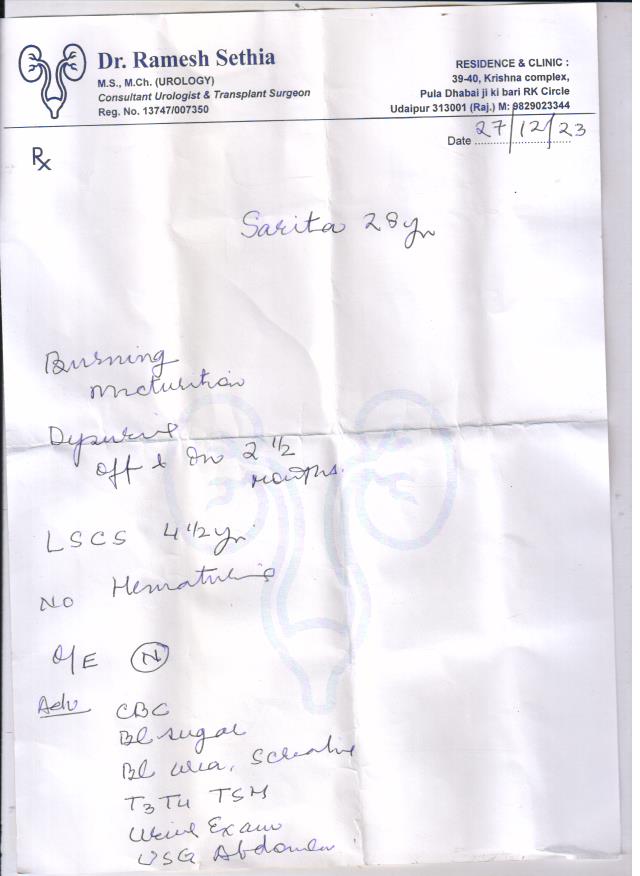 Dr. Ramesh Sethia
M.S., M.Ch. (UROLOGY)
Consultant Urologist & Transplant Surgeon
Reg. No. 13747/007350
RESIDENCE & CLINIC :
39-40, Krishna complex,
Pula Dhabai ji ki bari RK Circle
Udaipur 313001 (Raj.) M: 9829023344
Date 27/12/23
Rx
Sarita 28 yr
Burning
micturition
Dysuria
off & on 2 1/2
months.
LSCS 4 1/2 yr
No Hematuria
O/E N
Adv CBC
Bl sugar
Bl urea, S creatine
T3 T4 TSH
Urine Exam
USG Abdomen